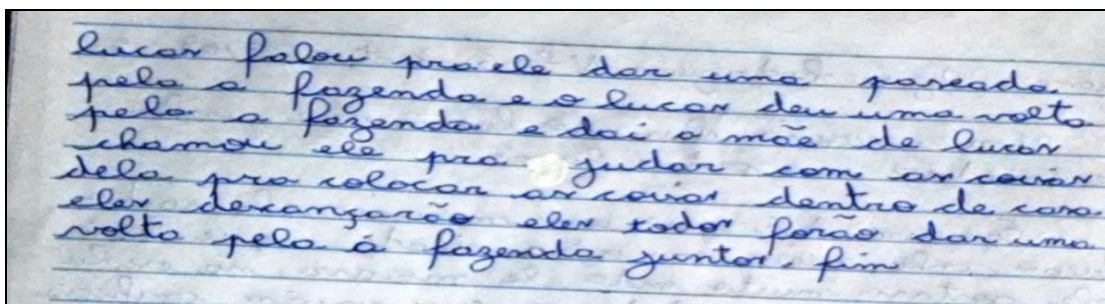 lucas falou pra ele dar uma paseada
pela a fazenda e o lucas deu uma volta
pela a fazenda e dai a mãe de lucas
chamou ele pra judar com as coisas
dela pra colocar as coisas dentro de casa
eles descançarão eles todos forão dar uma
volta pela á fazenda juntos. fim